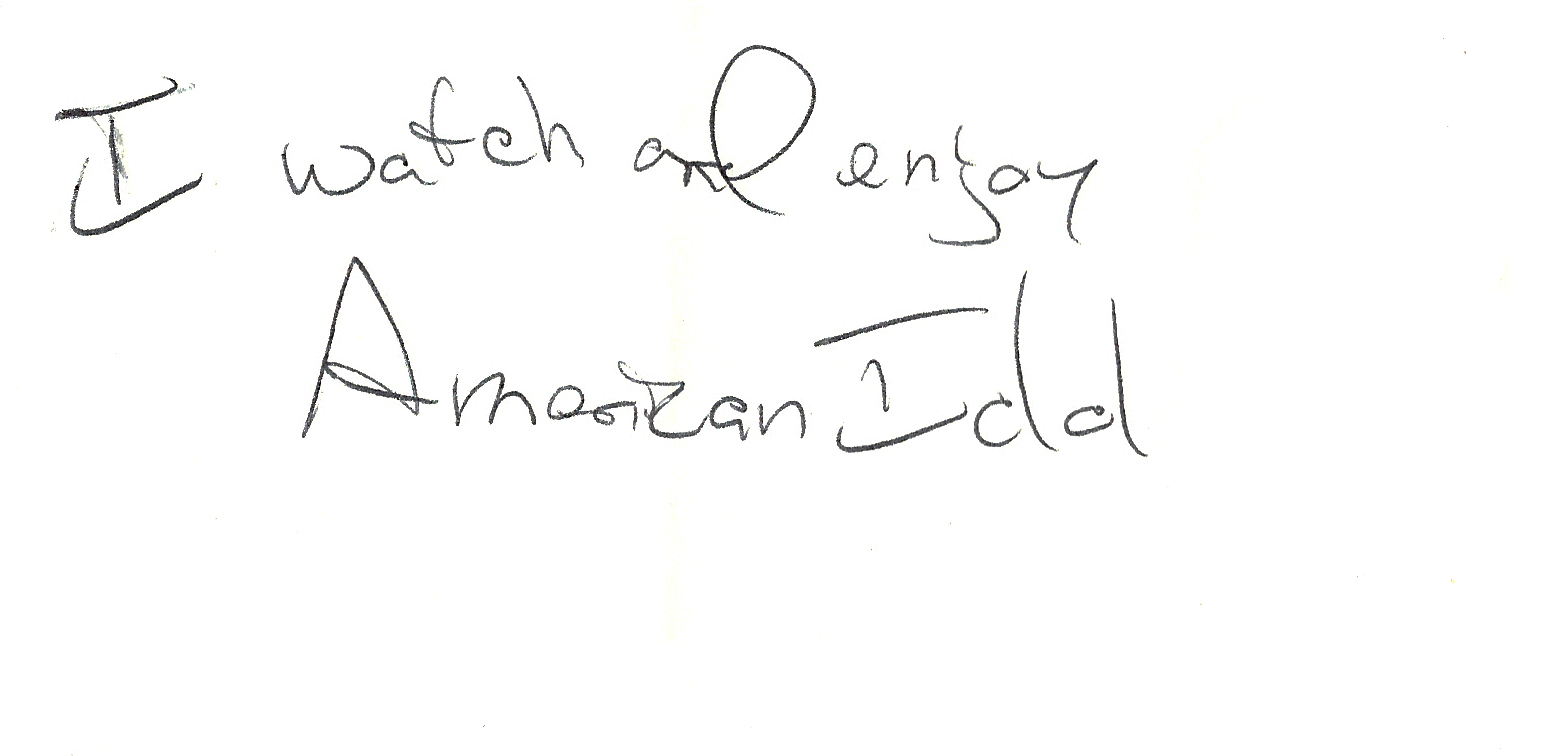 I watch and enjoy
American Idol